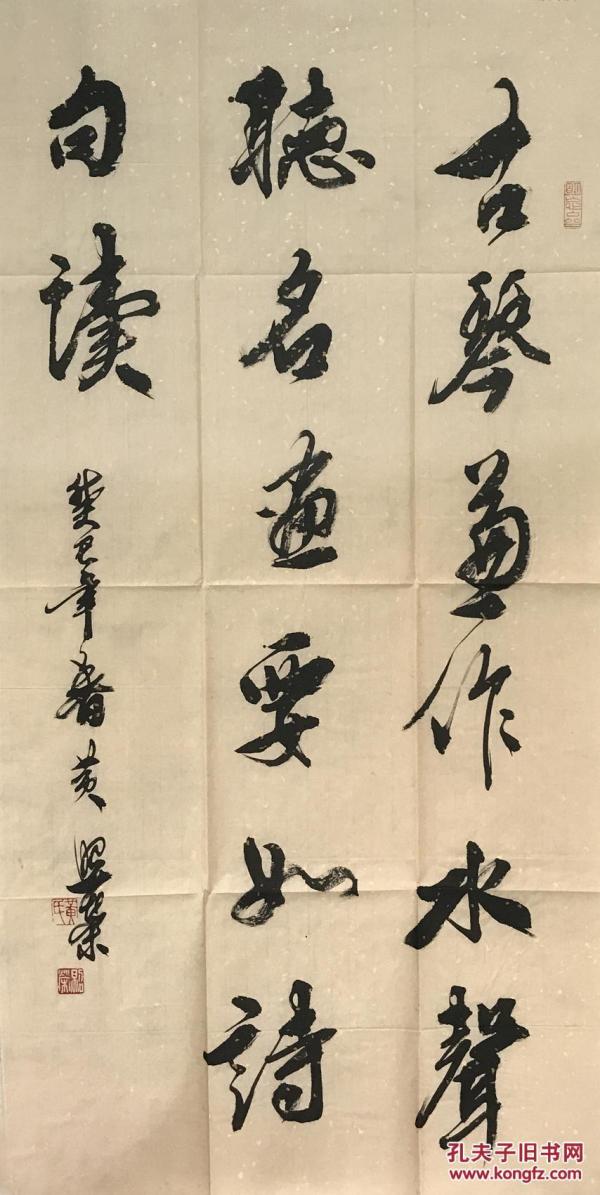 古琴兼作水聲
聽名畫要如詩
句讀
癸巳年春黄照榮
黄氏
孔夫子旧书网
www.kongfz.com